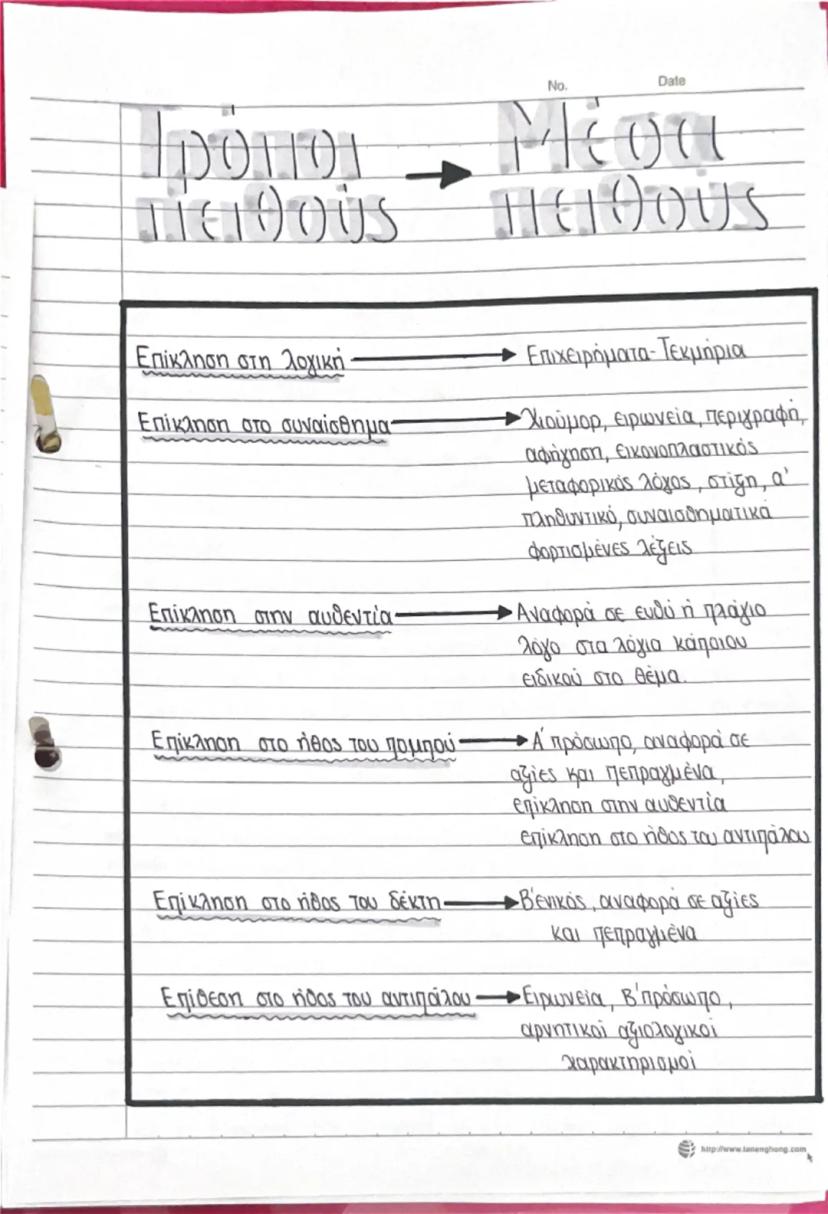 No. Date
Τρόποι πειθούς → Μέσα πειθούς
Επίκληση στη λογική → Επιχειρήματα-Τεκμήρια
Επίκληση στο συναίσθημα → Χιούμορ, ειρωνεία, περιγραφή,
αφήγηση, εικονοπλαστικός
μεταφορικός λόγος, στίξη, α'
πληθυντικό, συναισθηματικά
φορτισμένες λέξεις
Επίκληση στην αυθεντία → Αναφορά σε ευθύ ή πλάγιο
λόγο στα λόγια κάποιου
ειδικού στο θέμα.
Επίκληση στο ήθος του πομπού → Α' πρόσωπο, αναφορά σε
αξίες και πεπραγμένα,
επίκληση στην αυθεντία
επίκληση στο ήθος του αντιπάλου
Επίκληση στο ήθος του δέκτη → Β'ενικός, αναφορά σε αξίες
και πεπραγμένα
Επίθεση στο ήθος του αντιπάλου → Ειρωνεία, Β'πρόσωπο,
αρνητικοί αξιολογικοί
χαρακτηρισμοί